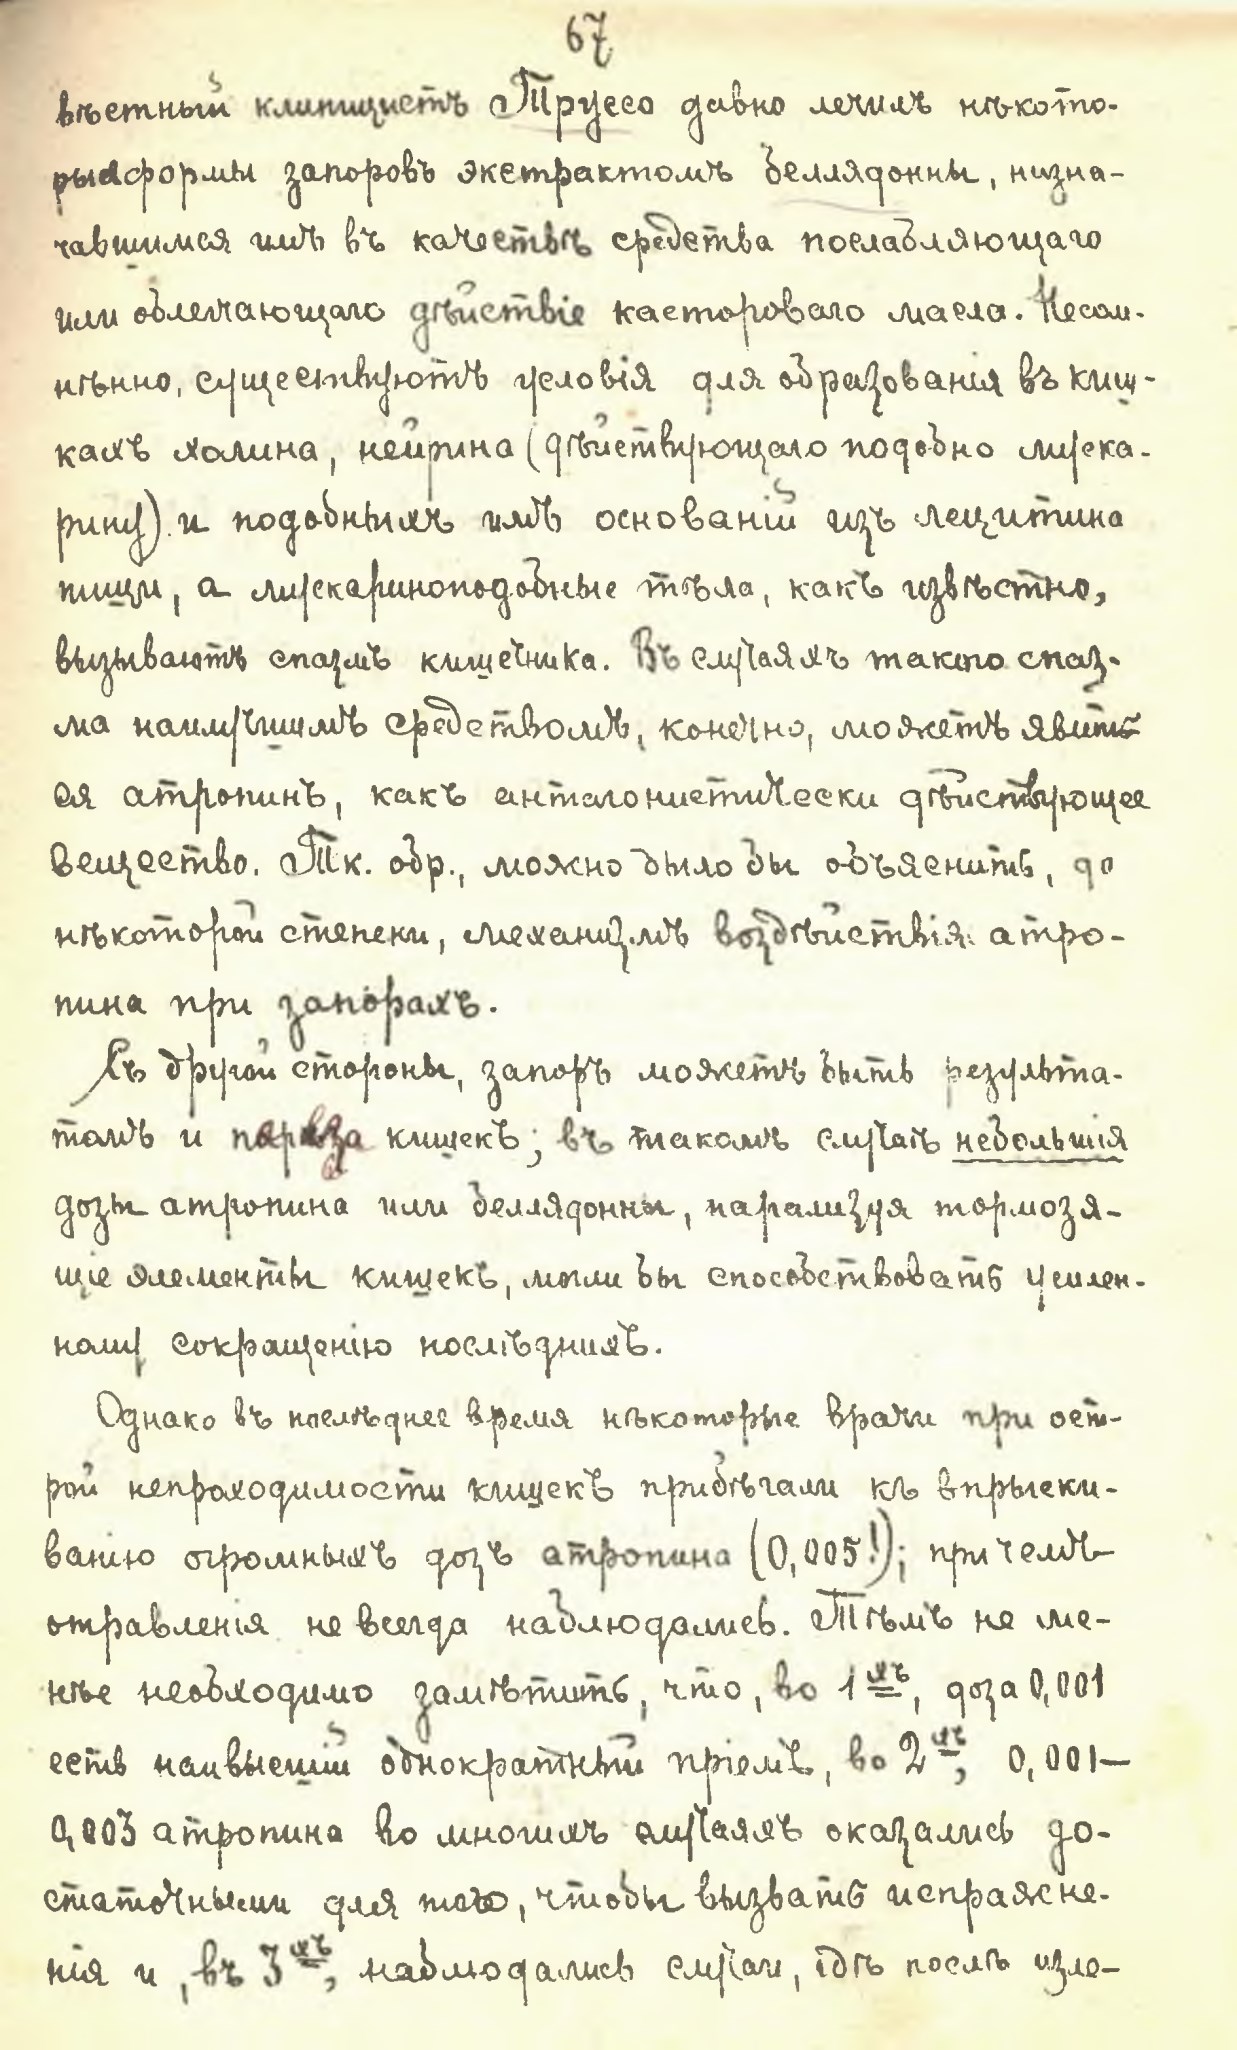 67
вѣстный клиницистъ Труссо давно лечилъ нѣкото-
рыя формы запоровъ экстрактомъ белладонны, низна-
чавшимся имъ въ качествѣ средства послабляющаго
или облегчающаго дѣйствіе касторроваго масла. Несом-
нѣнно, существуютъ условія для образованія въ киш-
кахъ холина, нейрина (дѣйствующаго подобно муска-
рину) и подобныхъ имъ основаній изъ лецитина
пищи, а мускариноподобные тѣла, какъ извѣстно,
вызываютъ спазмъ кишечника. Въ случаяхъ такого спаз-
ма наилучшимъ средствомъ, конечно, можетъ явить
ся атропинъ, какъ антагонистически дѣйствующее
вещество. Тк. обр., можно было бы объяснить, до
нѣкоторой степени, механизмъ воздѣйствія атро-
пина при запорахъ.
Съ другой стороны, запоръ можетъ быть результа-
томъ и пареза кишекъ; въ такомъ случаѣ небольшія
дозы атропина или беллядонны, парализуя тормозя-
щіе элементы кишекъ, могли бы способствовать усилен-
ному сокращенію послѣднихъ.
Однако въ послѣднее время нѣкоторые врачи при ост-
рой непроходимости кишекъ прибѣгали къ впрыски-
ванію огромныхъ дозъ атропина (0,005!); при чемъ
отравленія не всегда наблюдались. Тѣмъ не ме-
нѣе необходимо замѣтить, что, во 1хъ, доза 0,001
есть наивысшій однократный пріемъ, во 2хъ, 0,001—
0,003 атропина во многихъ случаяхъ оказались до-
статочными для того, чтобы вызвать испражне-
нія и, въ 3хъ, наблюдались случаи, гдѣ послѣ изле-